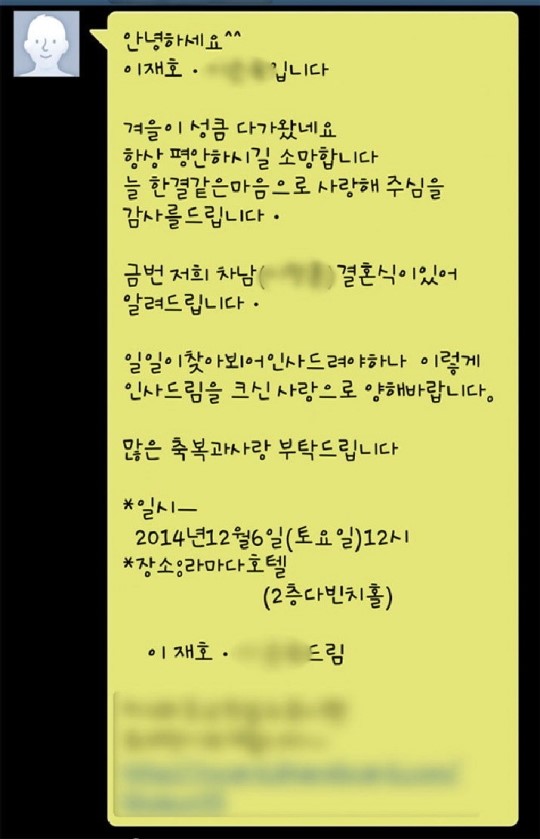 안녕하세요^^
이재호 · 입니다
겨울이 성큼 다가왔네요
항상 평안하시길 소망합니다
늘 한결같은마음으로 사랑해 주심을
감사를드립니다 ·
금번 저희 차남( )결혼식이있어
알려드립니다 ·
일일이찾아뵈어인사드려야하나 이렇게
인사드림을 크신 사랑으로 양해바랍니다。
많은 축복과사랑 부탁드립니다
*일시—
2014년12월6일(토요일)12시
*장소;라마다호텔
(2층다빈치홀)
이 재호 · 드림